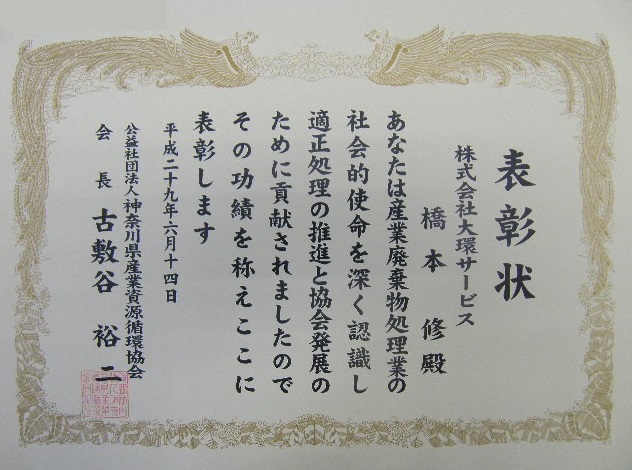 表彰状
株式会社大環サービス
橋本　修殿
あなたは産業廃棄物処理業の
社会的使命を深く認識し
適正処理の推進と協会発展の
ために貢献されましたので
その功績を称えここに
表彰します
平成二十九年六月十四日
公益社団法人神奈川県産業資源循環協会
会長　古敷谷　裕二